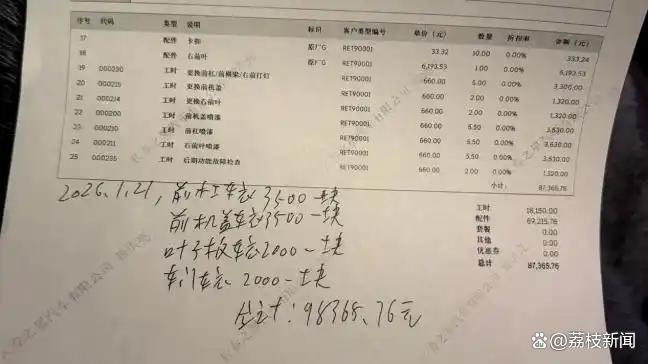 序号 代码 类型 说明 标识 客户类型编号 单价(元) 数量 折扣率 金额(元)
17 配件 卡扣 原厂G RET90001 33.32 10.00 0.00% 333.24
18 配件 右前叶 原厂G RET90001 6,193.53 1.00 0.00% 6,193.53
19 000230 工时 更换前杠/前横梁/右前灯 RET90001 660.00 5.00 0.00% 3,300.00
20 000215 工时 更换前机盖 RET90001 660.00 2.00 0.00% 1,320.00
21 000214 工时 更换右前叶 RET90001 660.00 2.00 0.00% 1,320.00
22 000200 工时 前机盖喷漆 RET90001 660.00 5.50 0.00% 3,630.00
23 000210 工时 前杠喷漆 RET90001 660.00 5.50 0.00% 3,630.00
24 000211 工时 右前叶喷漆 RET90001 660.00 5.50 0.00% 3,630.00
25 000235 工时 后期功能故障检查 RET90001 660.00 2.00 0.00% 1,320.00
小计: 87,365.76
工时: 18,150.00
配件 69,215.76
套餐 0.00
其他 0.00
优惠券 0.00
总计 87,365.76
2026.1.21,前杠车衣3500一块
前机盖车衣3500一块
叶子板车衣2000一块
车门车衣2000一块
全计:98365.76元
长春之星汽车有限公司
@荔枝新闻